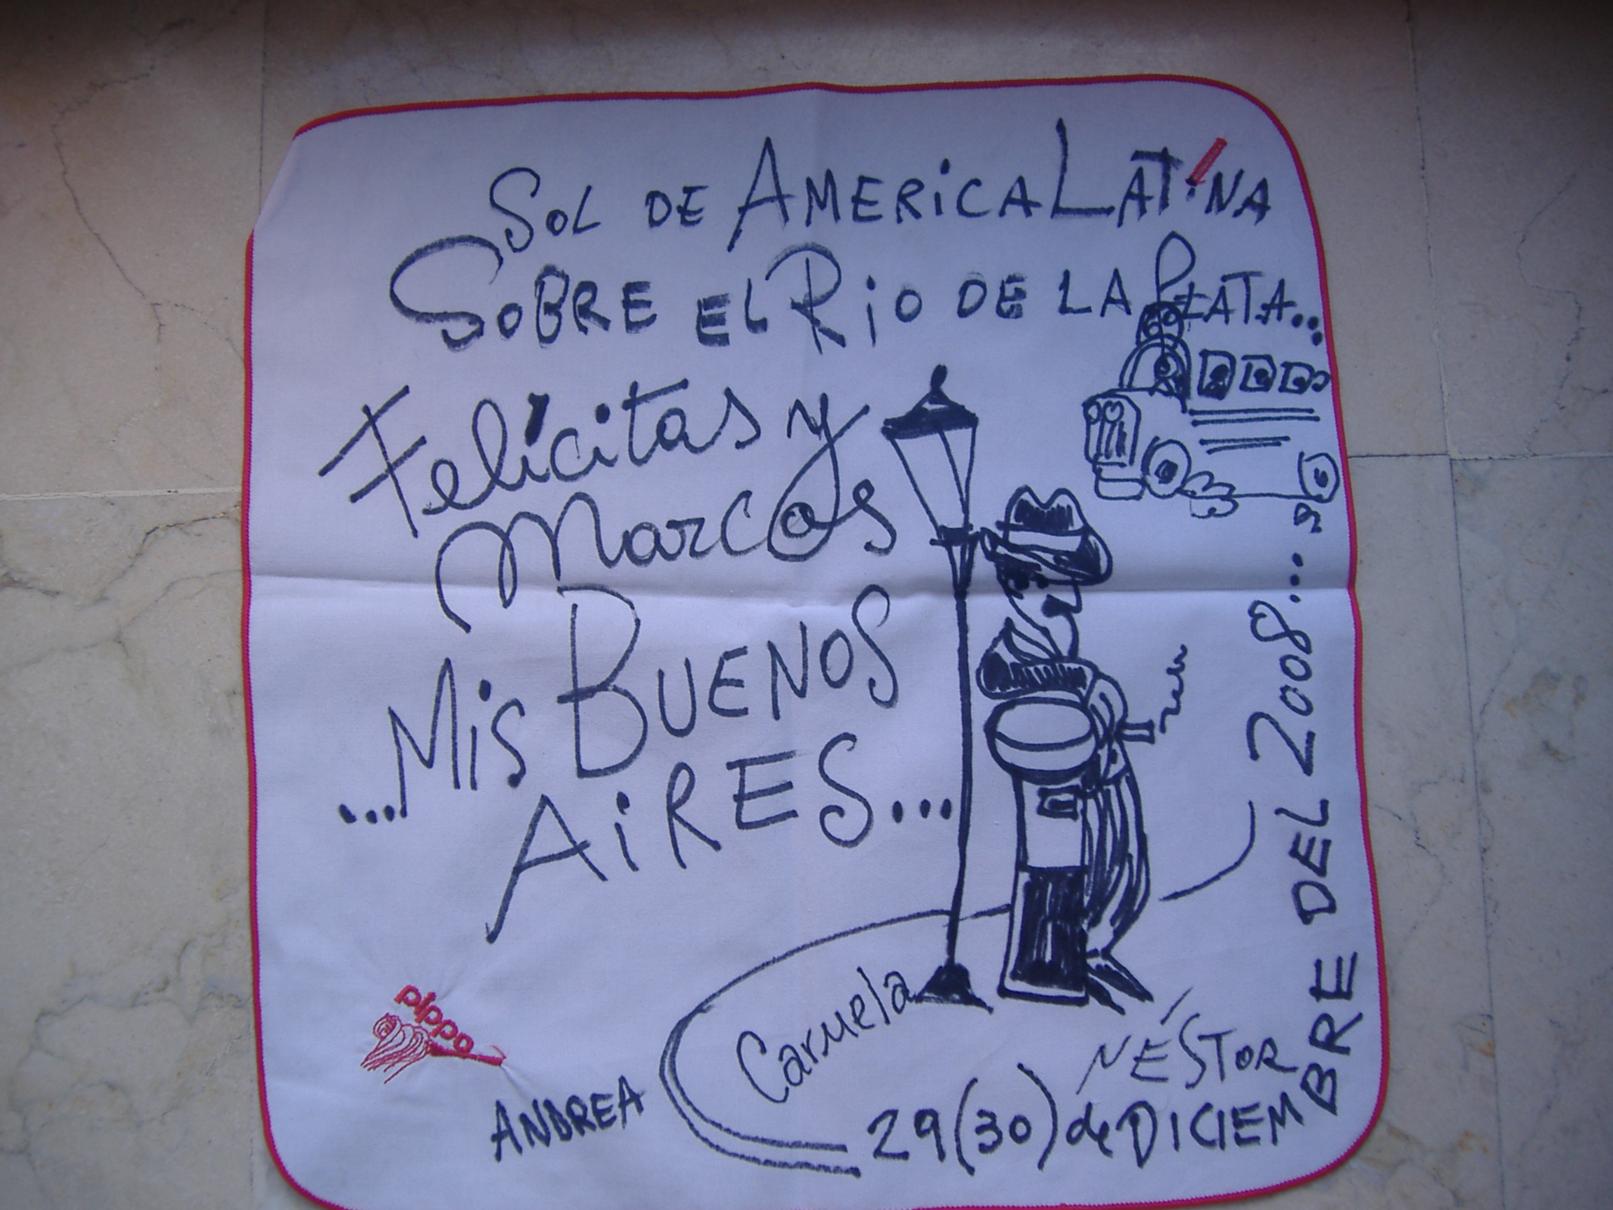 SOL DE AMERICA LATÍNA
SOBRE EL RiO DE LA PLATA...
Felícitas y
Marcos
...MiS BUENOS
AiRES...
pippo
ANDREA
Carmela
NÉSTOR
29 (30) de DICIEMBRE DEL 2008...